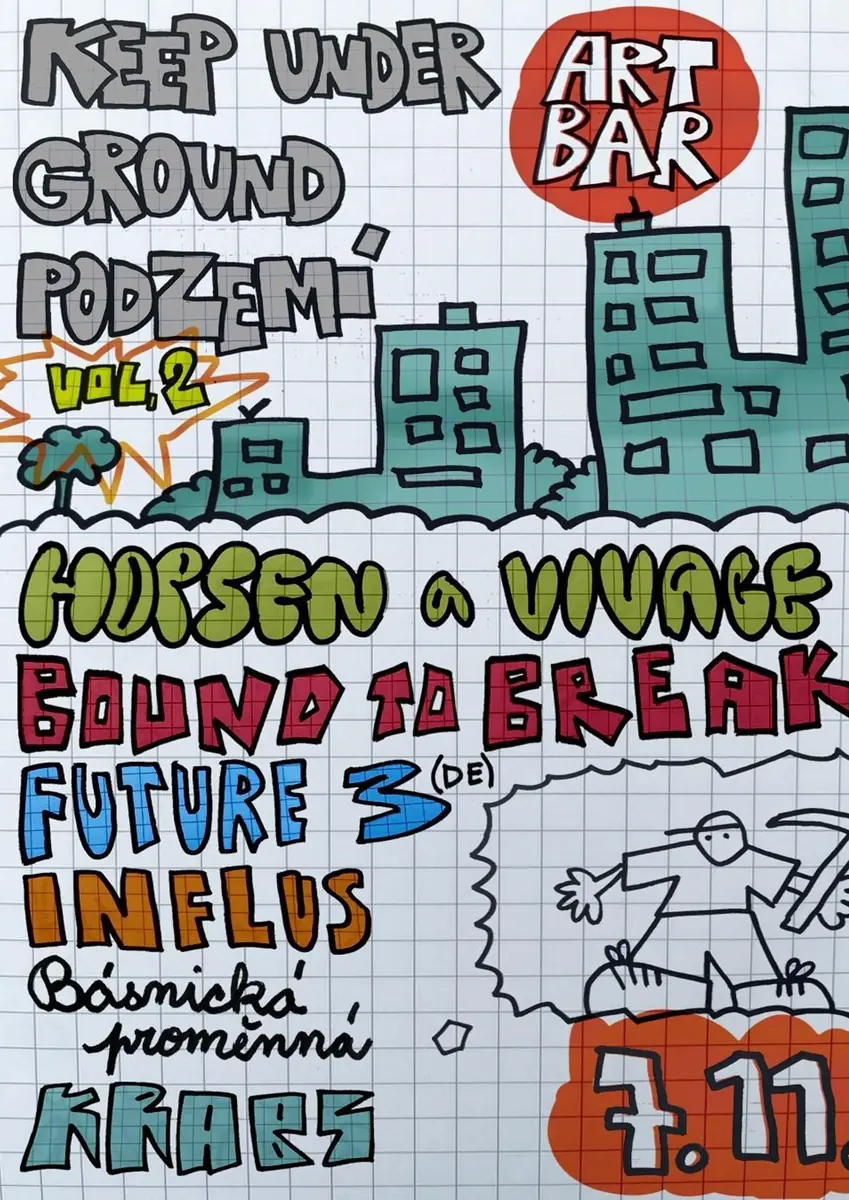 KEEP UNDER
GROUND
PODZEMÍ
VOL. 2
ART
BAR
HOPSEN a VIVAGE
BOUND TO BREAK
FUTURE 3 (DE)
INFLUS
Básnická
proměnná
KRABS
7.11.